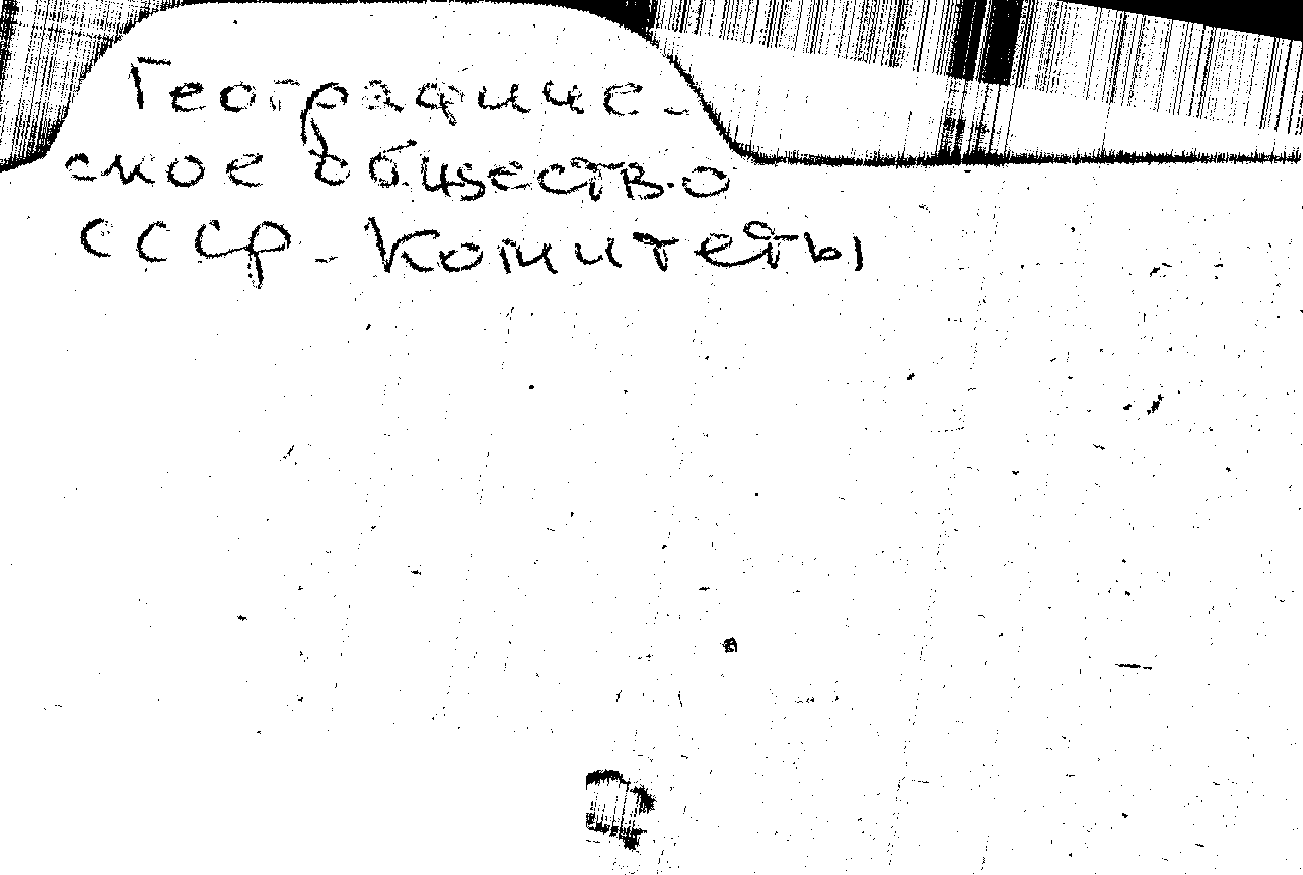 Географиче-
ское общество
СССР - Комитеты